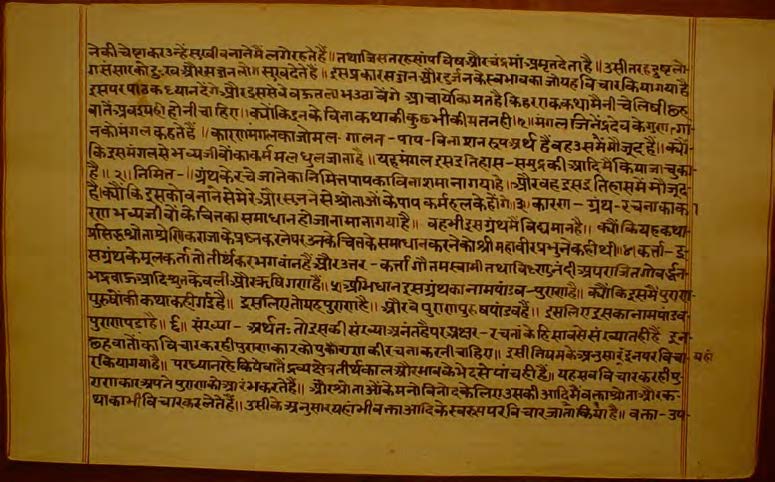 नेकी चेष्टा कर उन्हें सुखी बनाने में लगे रहते हैं॥ तथा जिस तरह सांप विष और चंद्रमा अमृत देता है॥ उसी तरह दुष्ट लो-
ग संसारको दुःख और सज्जन लोग सुख देते हैं॥ इस प्रकार सज्जन और दुर्जन के स्वभाव का जो यह विचार किया गया है
इस पर पाठक ध्यान देंगे और इससे वे बहुत लाभ उठावेंगे आचार्यों का मत है कि हर एक कथा में नीचे लिखी छह
बातें अवश्य ही होनी चाहिए॥ क्योंकि इनके विना कथा की कुछ भी कीमत नहीं॥ १॥ मंगल जिनेंद्रदेव के गुणगा-
न को मंगल कहते हैं॥ कारण मंगल का जो मल - गालन - पाप - विनाशन रूप अर्थ है वह उसमें मौजूद है॥ क्यों-
कि इस मंगल से भव्यजीवों का कर्म मल धुल जाता है॥ यह मंगल इस इतिहास - समुद्र की आदि में किया जा चुका
है॥ २॥ निमित्त -॥ ग्रंथ के रचे जाने का निमित्त पाप का विनाश माना गया है॥ और वह इस इतिहास में मौजूद-
है। क्योंकि इसको बनाने से मेरे और सुनने से श्रोताओं के पाप कर्म हलके होंगे॥ ३॥ कारण - ग्रंथ - रचना का का
रण भव्यजीवों के चित्त का समाधान हो जाना माना गया है॥ वह भी इस ग्रंथ में विद्यमान है॥ क्योंकि यह कथा
प्रसिद्ध श्रोता श्रेणिक राजा के प्रश्न करने पर उनके चित्त के समाधान करने को श्री महावीर प्रभु ने कही थी॥ ४॥ कर्त्ता - इ-
स ग्रंथ के मूल कर्ता तो तीर्थंकर भगवान हैं और उत्तर - कर्त्ता गौतमस्वामी तथा विष्णु नंदी अपराजित गोवर्द्धन
भद्रबाहु आदि श्रुत केवली और ऋषिगण हैं॥ ५॥ अभिधान इस ग्रंथ का नाम पांडव - पुराण है॥ क्योंकि इसमें पुराण-
पुरुषों की कथा कही गई है॥ इसलिए तो यह पुराण है॥ और वे पुराण पुरुष पांडव हैं॥ इसलिए इसका नाम पांडव-
पुराण पडा है॥ ६॥ संख्या - अर्थतः तो इसकी संख्या अनंत है पर अक्षर - रचना के हिसाब से संख्यात ही है इन-
छह बातों का विचार कर ही पुराणकार को पुराण की रचना करनी चाहिए॥ इसी नियम के अनुसार इन पर विचा- यहां
र किया गया है॥ पर ध्यान रहे कि ये बातें द्रव्य क्षेत्र तीर्थ काल और भाव के भेद से पांच ही हैं॥ यह सब विचार कर ही पु-
राणकार अपने पुराण को आरंभ करते हैं॥ और श्रोताओं के मनोविनोद के लिए उसकी आदि में वक्ता श्रोता और क-
था का भी विचार कर लेते हैं॥ उसी के अनुसार यहां भी वक्ता आदि के स्वरूप पर विचार जाता किया है॥ वक्ता - उप-